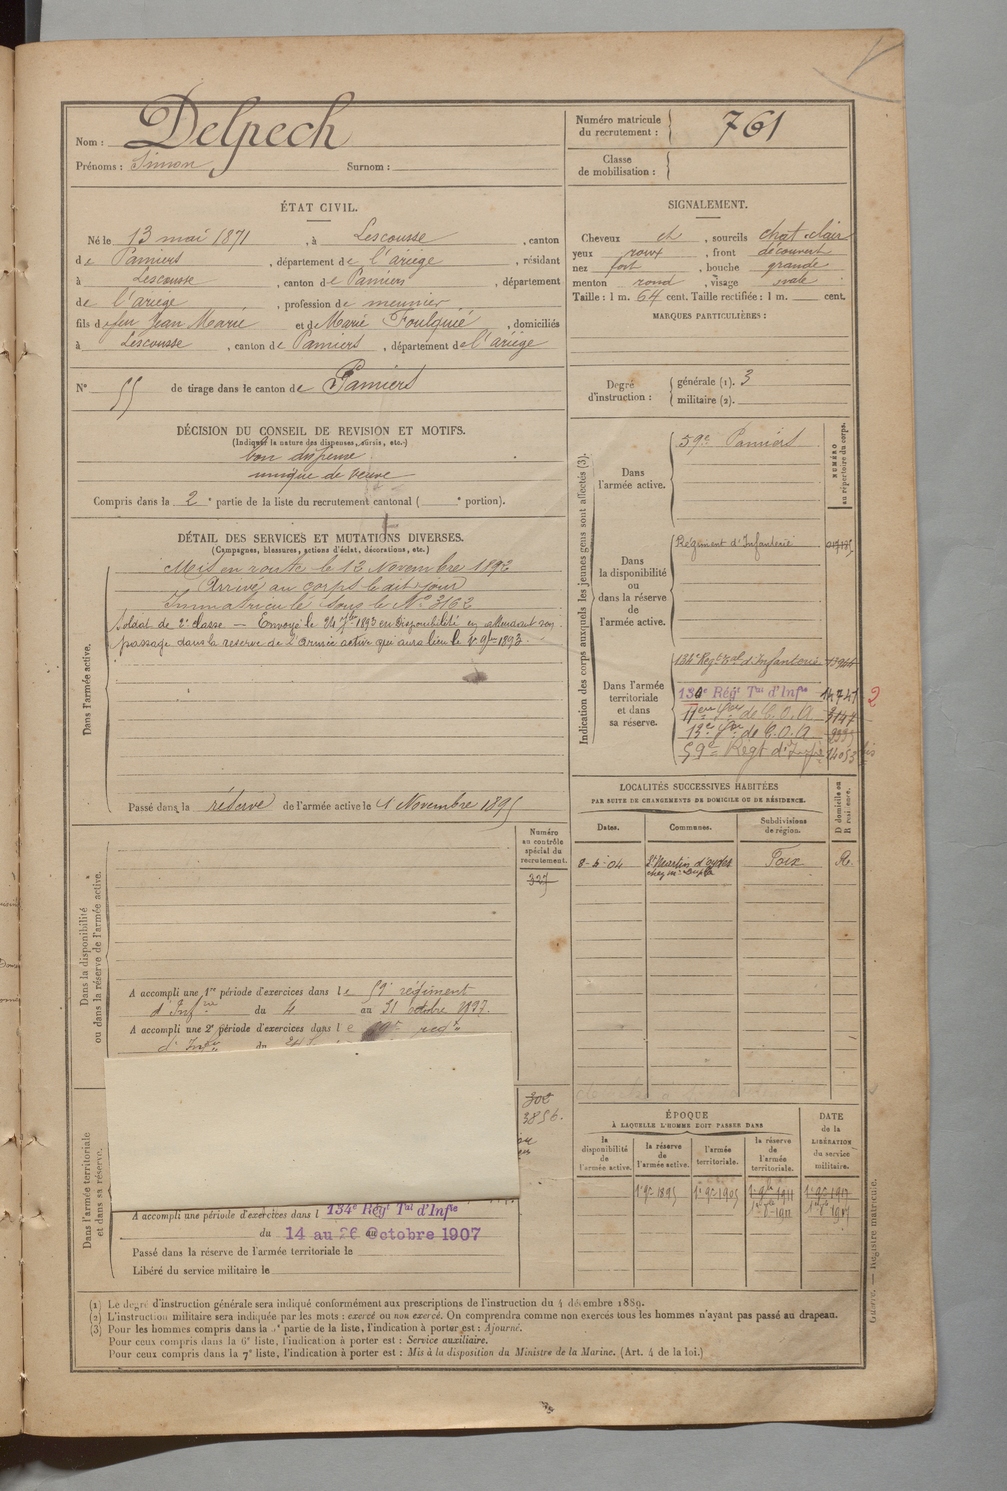 Nom : Delpech
Prénoms : Simon Surnom :
Numéro matricule
du recrutement : 761
Classe
de mobilisation :
ÉTAT CIVIL.
Né le 13 mai 1871, à Lescousse, canton
de Pamiers, département de l'ariège, résidant
à Lescousse, canton de Pamiers, département
de l'ariège, profession de meunier
fils de feu Jean Marie et de Marie Foulquié, domiciliés
à Lescousse, canton de Pamiers, département de l'ariège
N° 55 de tirage dans le canton de Pamiers
SIGNALEMENT.
Cheveux ch, sourcils chat. clair
yeux roux, front découvert
nez fort, bouche grande
menton rond, visage ovale
Taille : 1 m. 64 cent. Taille rectifiée : 1 m. cent.
MARQUES PARTICULIÈRES :
Degré
d'instruction :
générale (1). 3
militaire (2).
DÉCISION DU CONSEIL DE REVISION ET MOTIFS.
(Indiquer la nature des dispenses, sursis, etc.)
bon dispensé
unique de veuve
Compris dans la 2e partie de la liste du recrutement cantonal ( e portion).
DÉTAIL DES SERVICES ET MUTATIONS DIVERSES.
(Campagnes, blessures, actions d'éclat, décorations, etc.)
Dans l'armée active.
Mis en route le 12 Novembre 1892
Arrivé au corps le dit jour
Immatriculé sous le N° 3162
Soldat de 2e classe. — Envoyé le 24 7bre 1893 en disponibilité en attendant son
passage dans la réserve de l'Armée active qui aura lieu le 1er 9bre 1895.
Passé dans la réserve de l'armée active le 1 Novembre 1895
Indication des corps auxquels les jeunes gens sont affectés (3).
NUMÉRO
au répertoire du corps.
Dans
l'armée active.
59e Pamiers
Dans
la disponibilité
ou
dans la réserve
de
l'armée active.
Régiment d'Infanterie
Dans l'armée
territoriale
et dans
sa réserve.
134e Regt Tal d'Infanterie
134e Régt Tal d'Infie 14741 2
11e Son de C.O.A 3147
13e Son de C.O.A
59e Regt d'Infie 14053 bis
LOCALITÉS SUCCESSIVES HABITÉES
PAR SUITE DE CHANGEMENTS DE DOMICILE OU DE RÉSIDENCE.
Dates.
Communes.
Subdivisions
de région.
D domicile ou
R résidence.
8-5-04 St Martin d'oydes Foix R.
Dans la disponibilité
ou dans la réserve de l'armée active.
Numéro
au contrôle
spécial du
recrutement.
327
A accompli une 1re période d'exercices dans le 59e régiment
d'Infie du 4 au 31 octobre 1897.
A accompli une 2e période d'exercices dans le 59e regt
d'Infie du
Dans l'armée territoriale
et dans sa réserve.
302
3856.
A accompli une période d'exercices dans l 134e Régt Tal d'Infie
du 14 au 26 Octobre 1907
Passé dans la réserve de l'armée territoriale le
Libéré du service militaire le
ÉPOQUE
À LAQUELLE L'HOMME DOIT PASSER DANS
DATE
de la
LIBÉRATION
du service
militaire.
la
disponibilité
de
l'armée active.
la réserve
de
l'armée active.
l'armée
territoriale.
la réserve
de
l'armée
territoriale.
1er 9bre 1895 1er 9bre 1905 1er 9bre 1911 1er 9bre 1917
1er 8bre 1911 1er 8bre 1917
(1) Le degré d'instruction générale sera indiqué conformément aux prescriptions de l'instruction du 4 décembre 1889.
(2) L'instruction militaire sera indiquée par les mots : exercé ou non exercé. On comprendra comme non exercés tous les hommes n'ayant pas passé au drapeau.
(3) Pour les hommes compris dans la 5e partie de la liste, l'indication à porter est : Ajourné.
Pour ceux compris dans la 6e liste, l'indication à porter est : Service auxiliaire.
Pour ceux compris dans la 7e liste, l'indication à porter est : Mis à la disposition du Ministre de la Marine. (Art. 4 de la loi.)
Guerre. — Registre matricule.